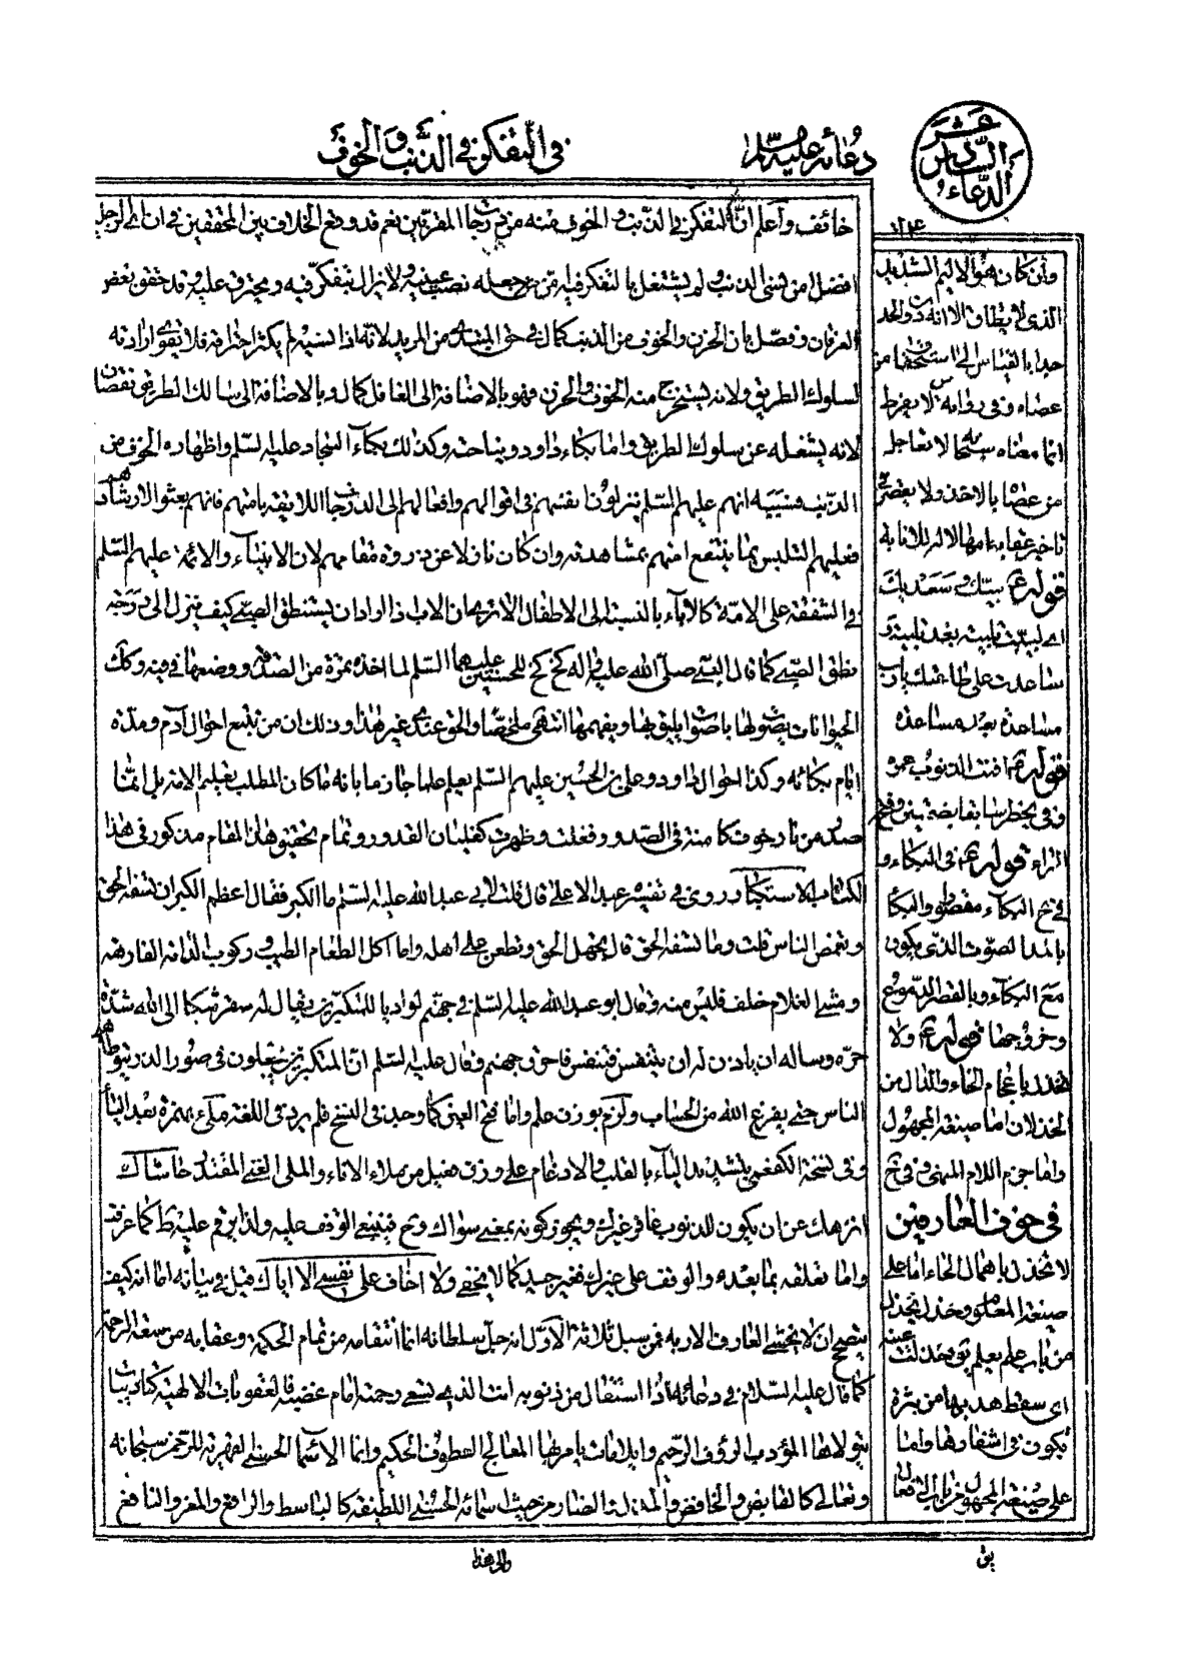 الدعاء السادس عشر
دعائه عليه السلام
في التفكر في الذنب والخوف
١٢٤
خائف واعلم ان التفكر في الذنب والخوف منه من درجات المقربين نعم قد وقع الخلاف بين المحققين في ان اي الرجلين
افضل امن نسى الذنب ولم يشتغل بالتفكر فيه ام من جعله نصب عينيه ولا يزال يتفكر فيه ويحترق عليه وقد حقق بعض
العرفان وفصل بان الحزن والخوف من الذنب كمال في حق المبتدى من المريد لانه اذا نسيه لم يكثر احتراقه فلا تقوى ارادته
لسلوك الطريق ولانه يستخرج منه الخوف والحزن فهو بالاضافة الى الغافل كمال وبالاضافة الى سالك الطريق نقصان
لانه يشغله عن سلوك الطريق واما بكاء داود ونياحته وكذلك بكاء السجاد عليه السلم واظهاره الخوف من
الذنب فسببه انهم عليهم السلم ينزلون انفسهم في اقوالهم وافعالهم الى الدرجات اللائقة بامتهم فانهم بعثوا لارشادهم
فعليهم التلبس بما ينتفع امتهم بمشاهدته وان كان نازلا عن ذروة مقامهم لان الانبياء والائمة عليهم السلم
في الشفقة على الامة كالآباء بالنسبة الى الاطفال الا ترى ان الاب اذا اراد ان يستنطق الصبي كيف ينزل الى درجة
نطق الصبي كما قال النبي صلى الله عليه واله كخ كخ للحسين عليهما السلم لما اخذ تمرة من الصدقة ووضعها في فيه وكذلك
الحيوانات يصوتوا لها باصوات يليق بها ويفهمها انتهى ملخصا والحق عندي غير هذا وذلك ان من تتبع احوال آدم ومدة
ايام بكائه وكذا احوال داود وعلي بن الحسين عليهم السلم يعلم علما جازما بانه ما كان المطلب تعليم الامة بل انما
صدر من نار خوف كامنة في الصدور فغلت وظهرت كغليان القدور وتمام تحقيق هذا المقام مذكور في هذا
الكتاب الاستكبار وروى في تفسيره عبد الاعلى قال قلت لابي عبد الله عليه السلم ما الكبر فقال اعظم الكبر ان تسفه الحق
وتغمض الناس قلت وما تسفه الحق قال يجهل الحق ويطعن على اهله واما اكل الطعام الطيب وركوب الدابة الفارهة
ومشى الغلام خلف فليس منه وقال ابو عبد الله عليه السلم في جهنم لواديا للمتكبرين يقال له سقر شكا الى الله شدة
حره وساله ان ياذن له ان يتنفس فتنفس فاحرق جهنم وقال عليه السلم ان المتكبرين يجعلون في صور الذر يتوطاهم
الناس حتى يفرغ الله من الحساب
وفي نسخة الكفعمي بتشديد الياء بالقلب والادغام على وزن فعيل من ملاء الاناء والملى الغنى المقتدر حاشاك
واما تعلقه بما بعده والوقف على خيرك فغير جيد كما لا يخفى ولا اخاف على نفسي الا اياك قيل في بيانه اما انه كيف
يصح ان لا يخشى العارف الا ربه فمن سبل ثلاثة الاول انه جل سلطانه انما انتقامه من تمام الحكمة وعقابه من سعة الرحمة
كما قال عليه السلام في دعائه اذا استقال من ذنوبه انت الذي تسعى رحمته امام غضبه فالعقوبات الالهية كتاديبات
يتولاها المؤدب الرؤف الرحيم وايلامات يامر بها المعالج العطوف الحكيم وانما الاسماء الحسنى القهرية للرحمن سبحانه
وتعالى كالقابض والخافض والمذل والضار من حيث اسمائه الحسنى اللطيفة كالباسط والرافع والمعز والنافع
والى هذا
وان كان هو الاليم الشديد
الذي لا يطاق الا انه دون الحد
عصاه وفي رواية س لا يفرط
انما معناه لا تعاجل
من عصاك بالاخذ ولا بقصر في
قوله ع لبيك وسعديك
اي لبيت تلبية بعد تلبية و
ساعدت على طاعتك يا رب
مساعدة بعد مساعدة
قوله ع افنت الذنوب عمره
الراء قوله ع في البكاء و
في خ البكاء مقصورا والبكا
بالمد الصوت الذي يكون
مع البكاء وبالقصر الدموع
وخروجها قوله ع ولا
تخذل باعجام الخاء والذال من
الخذلان اما صيغة المجهول
واما جزم اللام المبنى وفي خ
في خوف العارفين
لا تحدل باهمال الحاء اما على
صيغة المعلوم
من باب علم يعلم
اي سقط هدبها من بثرة
تكون في اشفارها واما
على صيغة المجهول من باب الافعال
يق